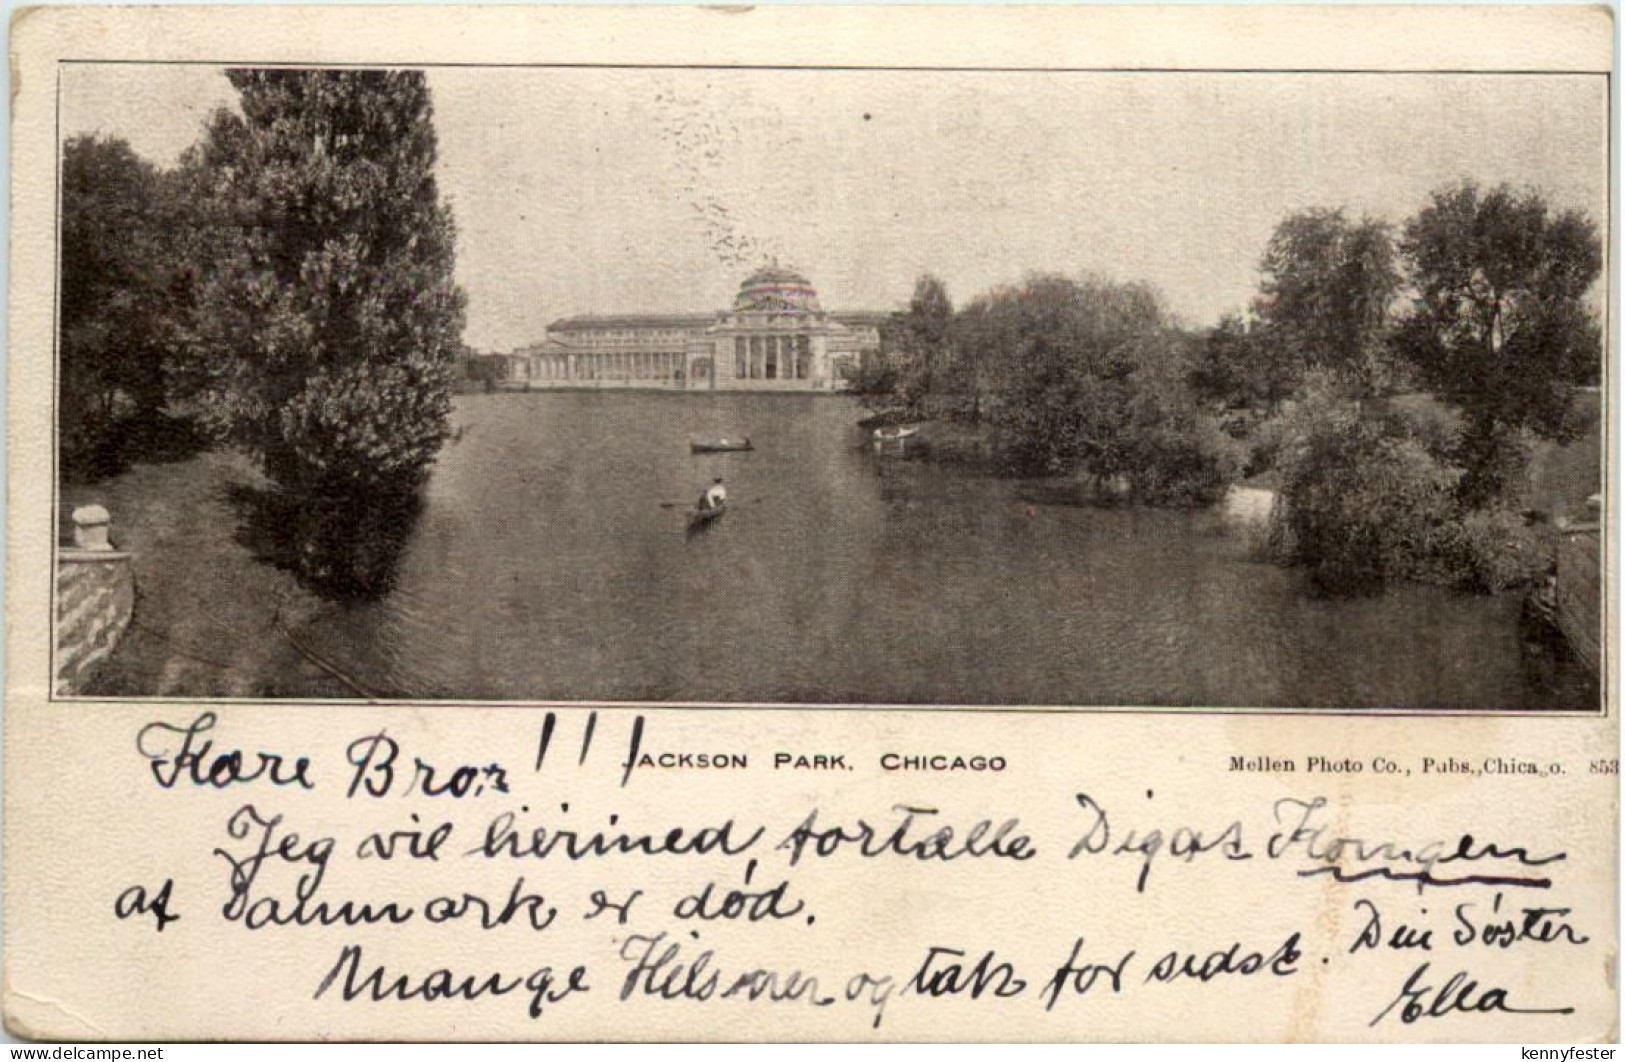 Kære Bror!!!
JACKSON PARK, CHICAGO
Mellen Photo Co., Pubs., Chicago. 853
Jeg vil hermed, fortælle Dig at Kongen
af Danmark er død.
Mange Hilsner og tak for sidst. Din Søster
Ella
delcampe.net
kennyfester